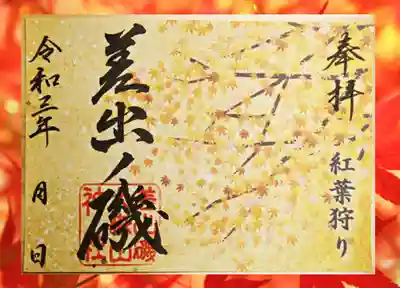 奉拝
紅葉狩り
差出ノ磯
神社
令和三年 月 日